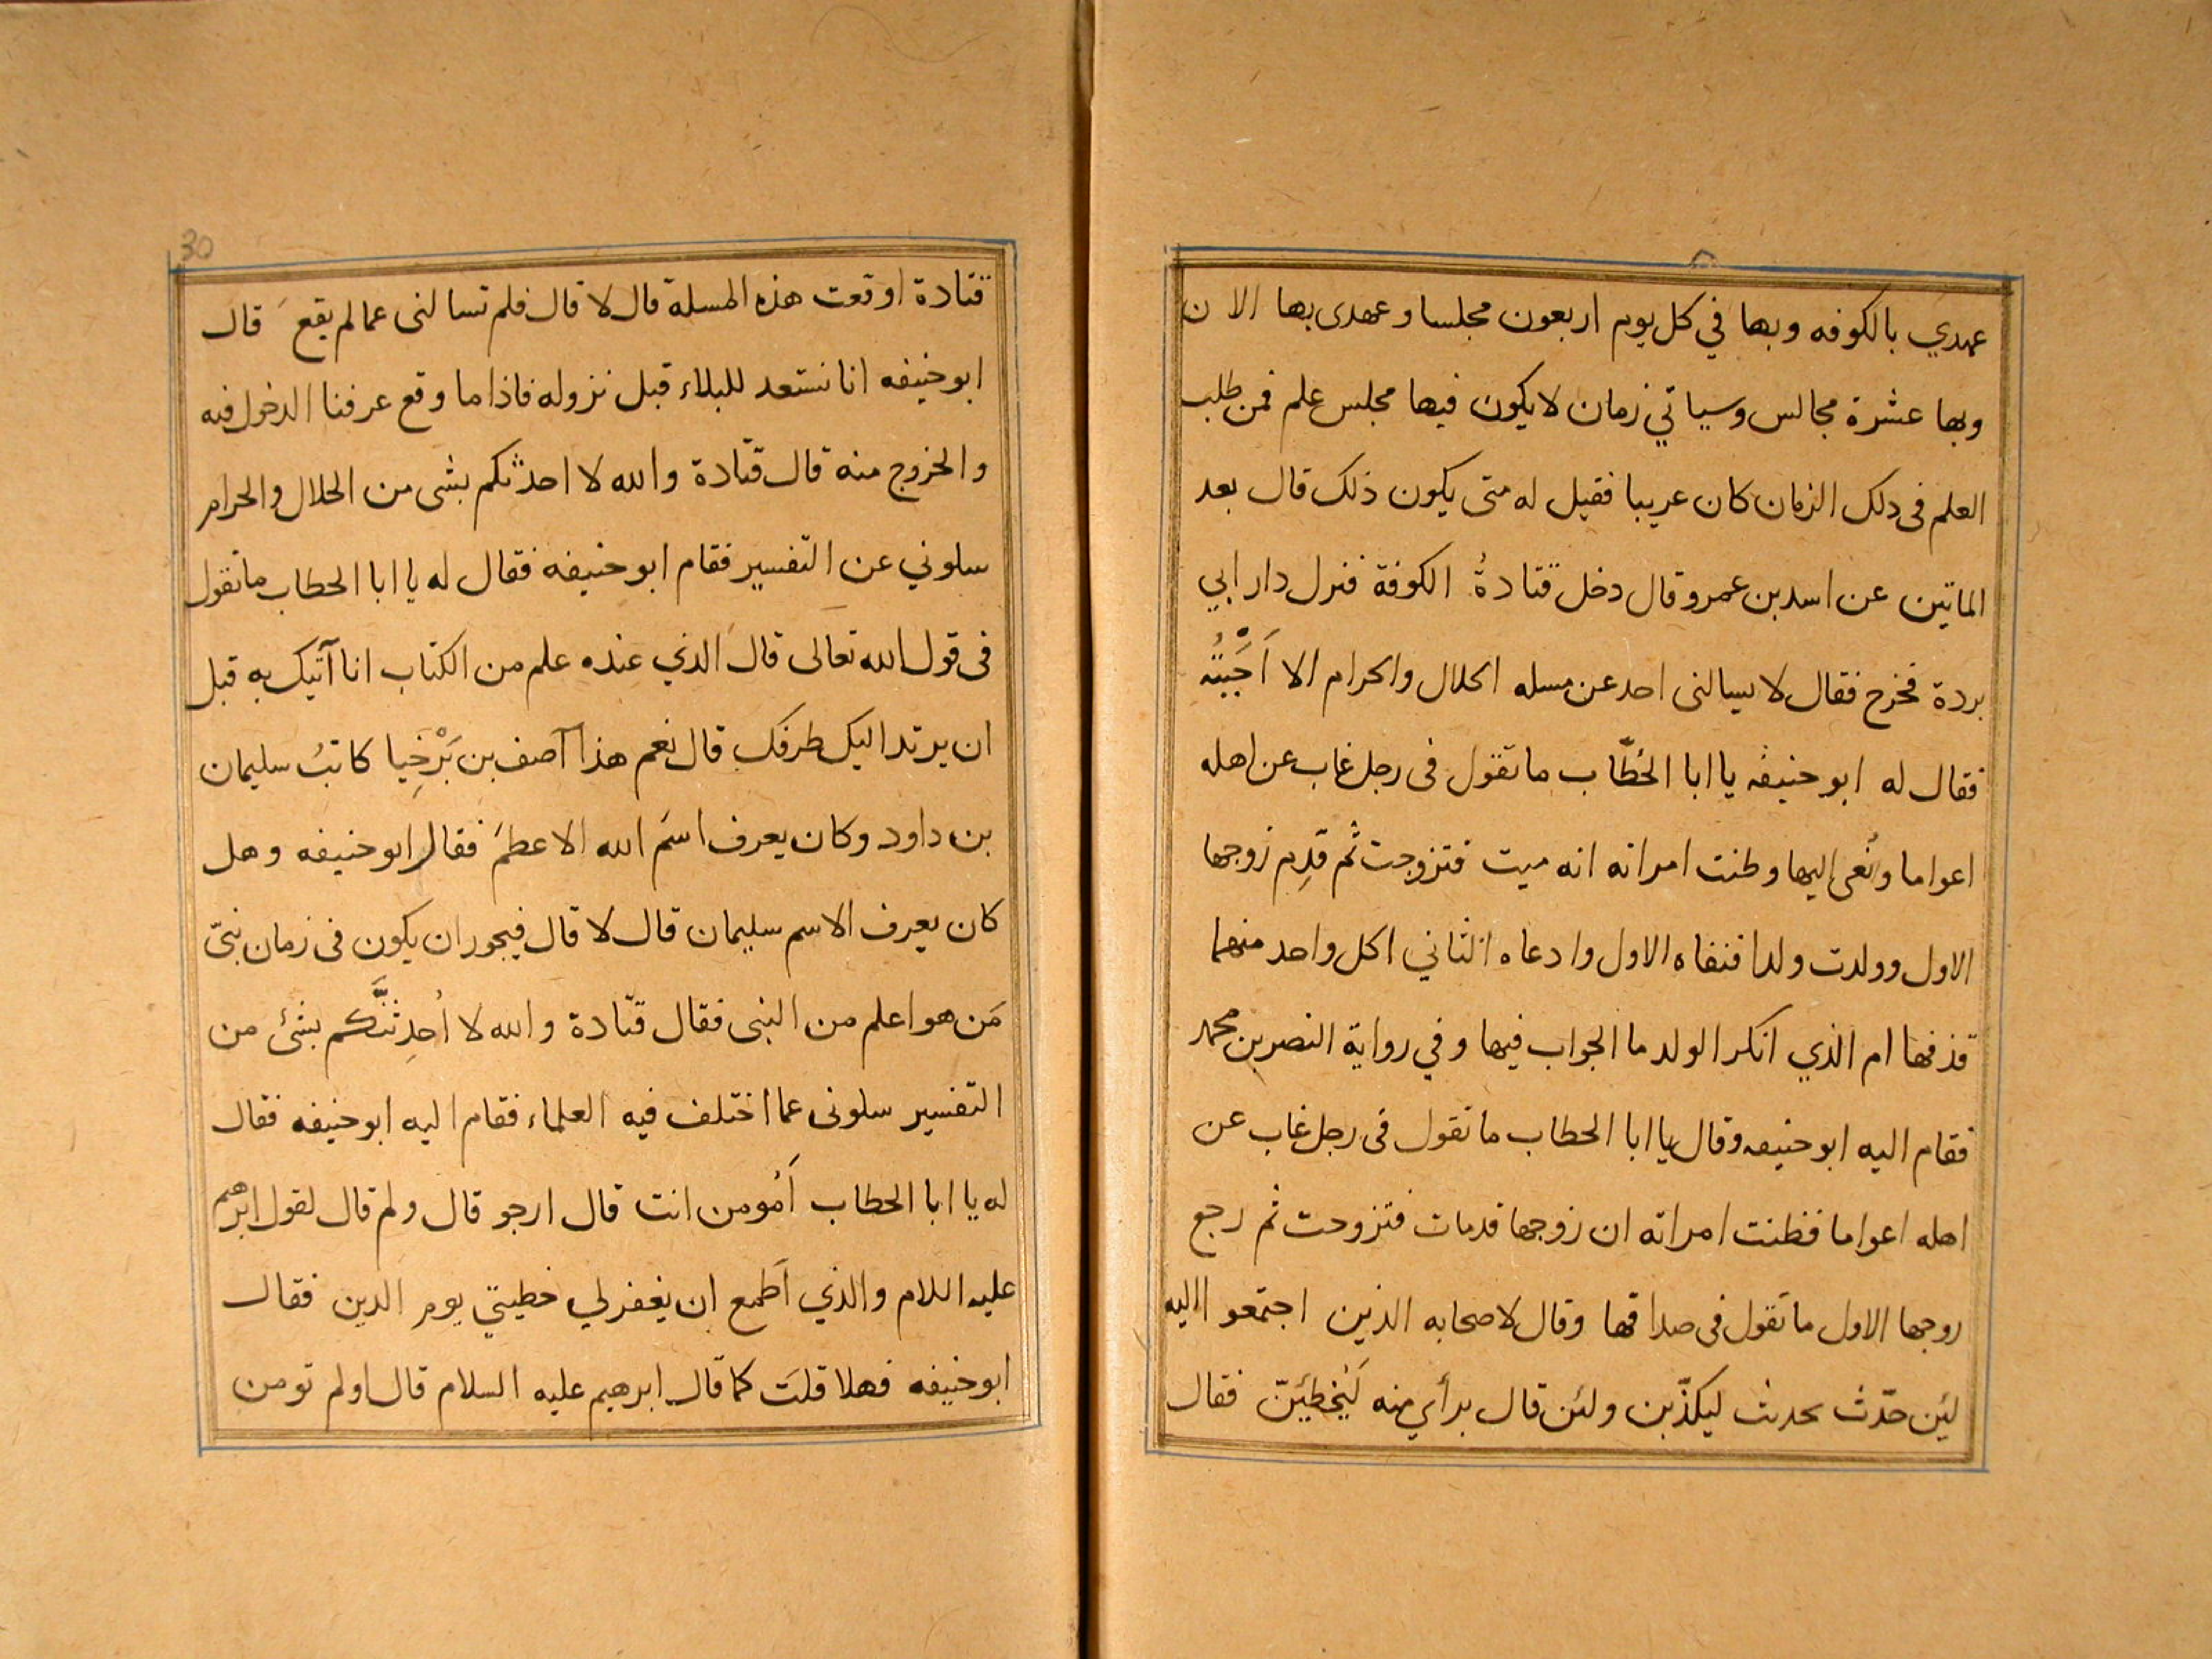 عهدي بالكوفه وبها في كل يوم اربعون مجلسا وعهدى بها الان
وبها عشرة مجالس وسياتي زمان لا يكون فيها مجلس علم فمن طلب
العلم فى دلك الزمان كان عريبا فقيل له متى يكون ذلك قال بعد
الماتين عن اسد بن عمرو قال دخل قتادةُ الكوفة فنرل دار ابي
بردة فخرج فقال لا يسالنى احد عن مسله الحلال والحرام الا اَجَبْتُه
فقال له ابو حنيفه يا ابا الخطّاب ما تقول فى رجل غاب عن اهله
اعواما ونُعى اليها وطنت امراته انه ميت فتزوجت ثم قدِم زوجها
الاول وولدت ولدا فنفاه الاول وادعاه الثاني اكل واحد منهما
قذفها ام الذي انكر الولد ما الجواب فيها وفي رواية النصر بن محمد
فقام اليه ابو حنيفه وقال يا ابا الحطاب ما تقول فى رجل غاب عن
اهله اعواما فظنت امراته ان زوجها قدمات فتزوحت ثم رجع
روجها الاول ما تقول فى صداقها وقال لاصحابه الذين اجتمعو االيه
لئِن حدّث بحديث ليكذّبن ولئن قال برأيٍ منه لَيُخطِئَنّ فقال
30
قتادة اوقعت هذه المسلة قال لا قال فلم تسالنى عما لم يقع قال
ابو حنيفه انا نستعد للبلاء قبل نزوله فاذا ما وقع عرفنا الدخول فيه
والخروج منه قال قتادة والله لا احدثكم بشى من الحلال والحرام
سلوني عن التفسير فقام ابو حنيفه فقال له يا ابا الحطاب ما تقول
فى قول الله تعالى قال الذي عنده علم من الكتاب انا آتيك به قبل
ان يرتد اليك طرفك قال نعم هذا آصف بن بَرْخِيا كاتبُ سليمان
بن داود وكان يعرف اسمَ الله الاعظمَ فقال ابو حنيفه وهل
كان يعرف الاسم سليمان قال لا قال فيجوز ان يكون فى زمان نبىّ
مَن هو اعلم من النبى فقال قتادة والله لا اُحدِثنَّكم بشئ من
التفسير سلونى عما اختلف فيه العلماء فقام اليه ابو حنيفه فقال
له يا ابا الحطاب اَمُومن انت قال ارجو قال ولم قال لقول ابرهيم
عليه اللام والذي اَطمع ان يغفر لي خطيتي يوم الدين فقال
ابو حنيفه فهلا قلتَ كما قال ابرهيم عليه السلام قال اولم تومن